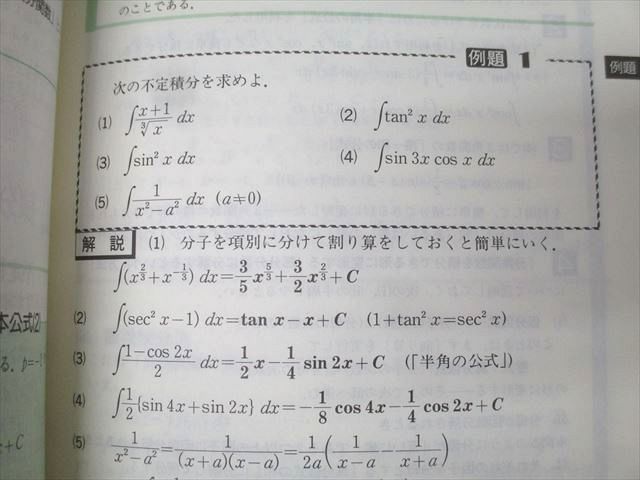 のことである.
例題 1
例題
次の不定積分を求めよ.
(1) ∫(x+1)/∛x dx (2) ∫tan² x dx
(3) ∫sin² x dx (4) ∫sin 3x cos x dx
(5) ∫1/(x²−a²) dx (a≠0)
解説 (1) 分子を項別に分けて割り算をしておくと簡単にいく.
∫(x^{2/3}+x^{-1/3}) dx=3/5 x^{5/3}+3/2 x^{2/3}+C
本公式(2)
(2) ∫(sec² x−1) dx=tan x−x+C (1+tan² x=sec² x)
(3) ∫(1−cos 2x)/2 dx=1/2 x−1/4 sin 2x+C (「半角の公式」)
(4) ∫1/2{sin 4x+sin 2x} dx=−1/8 cos 4x−1/4 cos 2x+C
+C
(5) 1/(x²−a²)=1/((x+a)(x−a))=1/2a(1/(x−a)−1/(x+a))